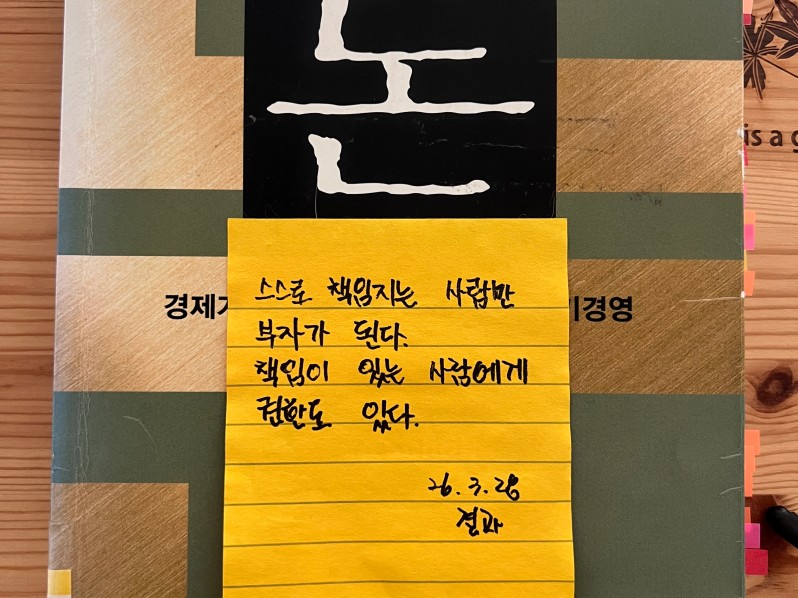 논
is a g
경제
기경영
스스로 책임지는 사람만
부자가 된다.
책임이 있는 사람에게
권한도 있다.
26. 3. 28
결과